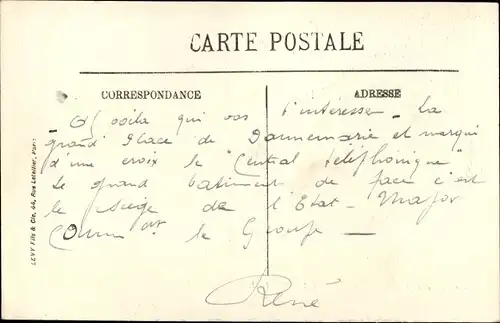 CARTE POSTALE
CORRESPONDANCE
ADRESSE
voila qui vas t'intéresser - la
grand place de Dannemarie et marqué
d'une croix le "Central téléphonique"
Le grand batiment de face c'est
le siège de l'Etat-Major
Comm dt le Groupe —
René
LEVY Fils & Cie, 44, Rue Letellier, Paris